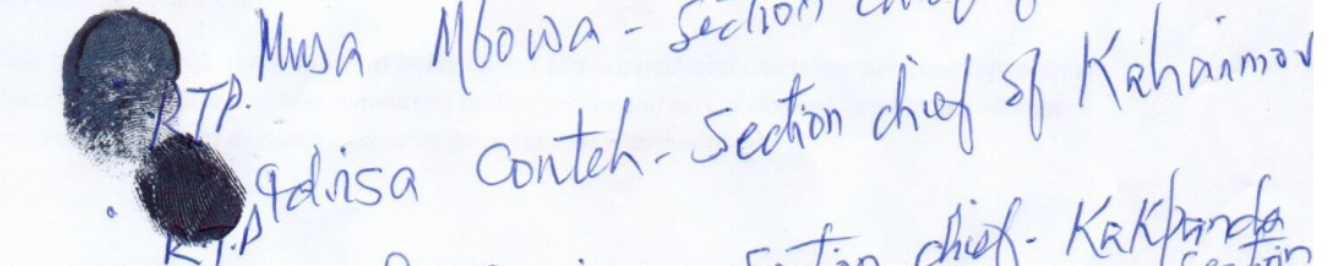 R.T.P. Musa Mbowa - Section chief of
R.T.P Idrisa Conteh - Section chief of Kahaimov
Section chief - Kakpanda
Section